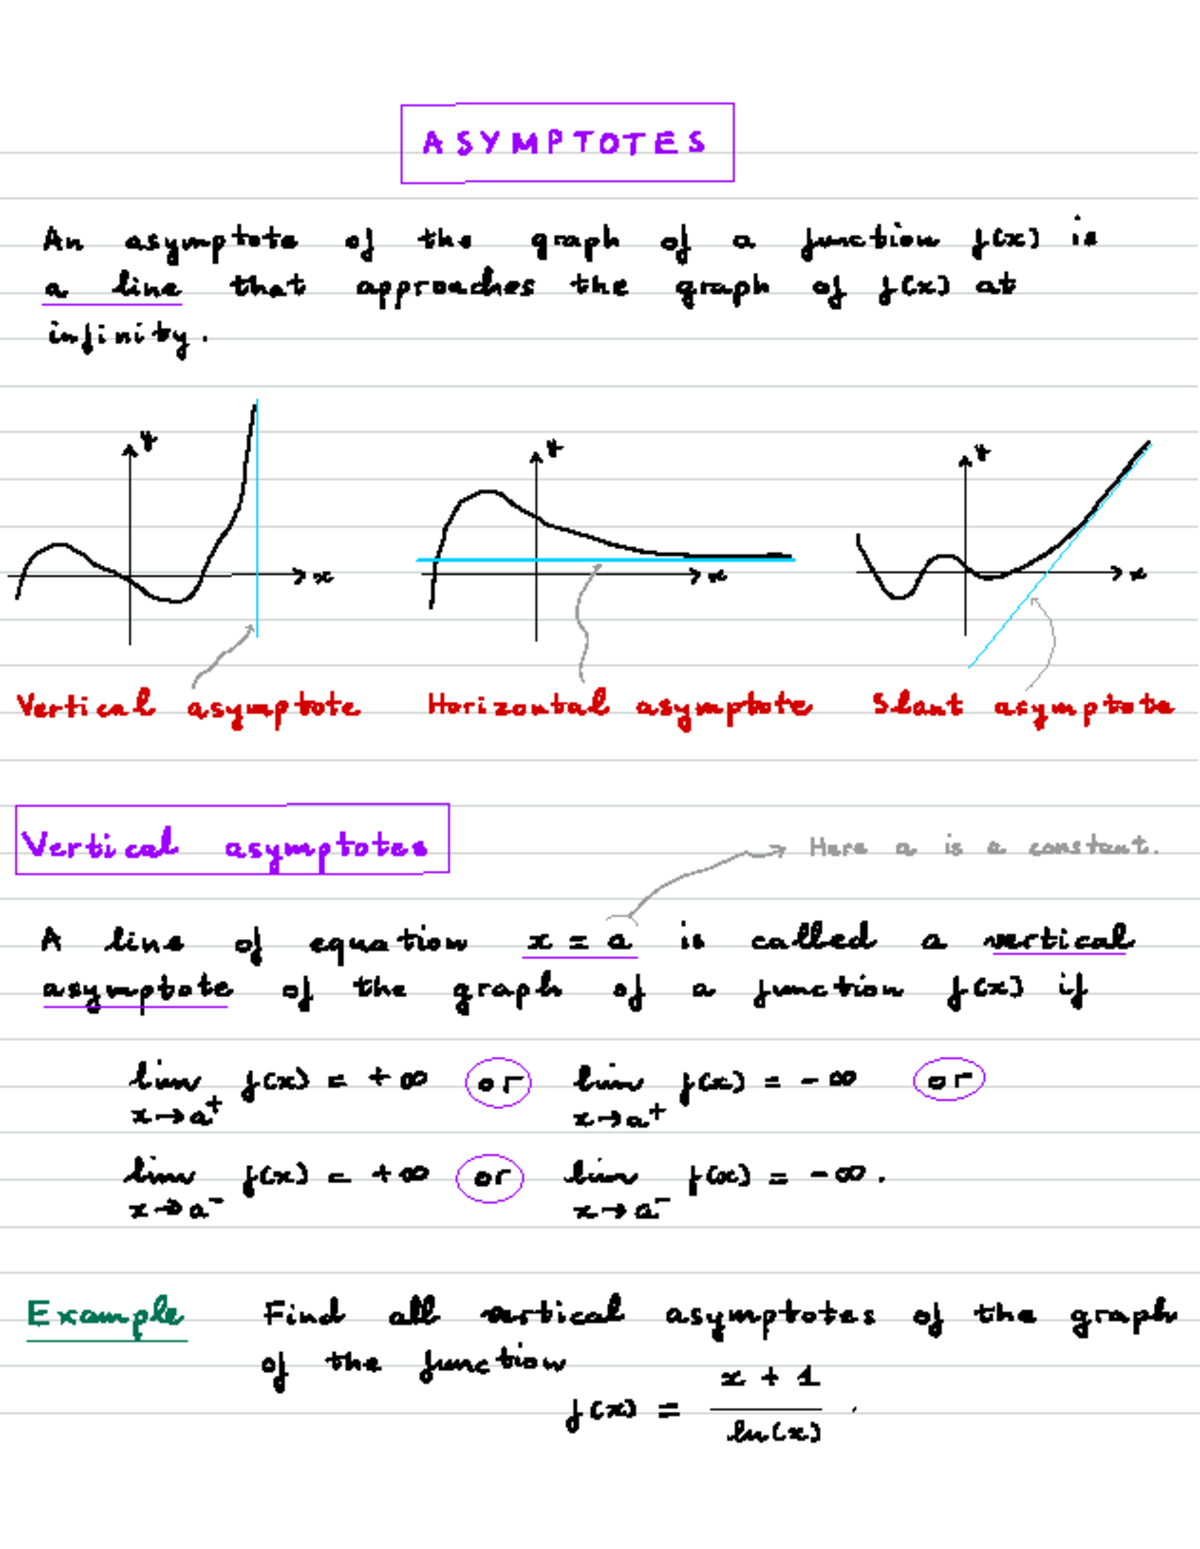 ASYMPTOTES
An asymptote of the graph of a function f(x) is
a line that approaches the graph of f(x) at
infinity.
y y y
x x x
Vertical asymptote Horizontal asymptote Slant asymptote
Vertical asymptotes
Here a is a constant.
A line of equation x = a is called a vertical
asymptote of the graph of a function f(x) if
lim f(x) = +∞ or lim f(x) = -∞ or
x→a⁺ x→a⁺
lim f(x) = +∞ or lim f(x) = -∞.
x→a⁻ x→a⁻
Example Find all vertical asymptotes of the graph
of the function
x + 1
f(x) = .
ln(x)